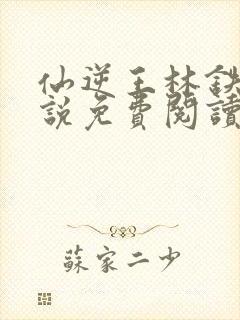 仙逆王林
說免費閱讀
蘇家二少